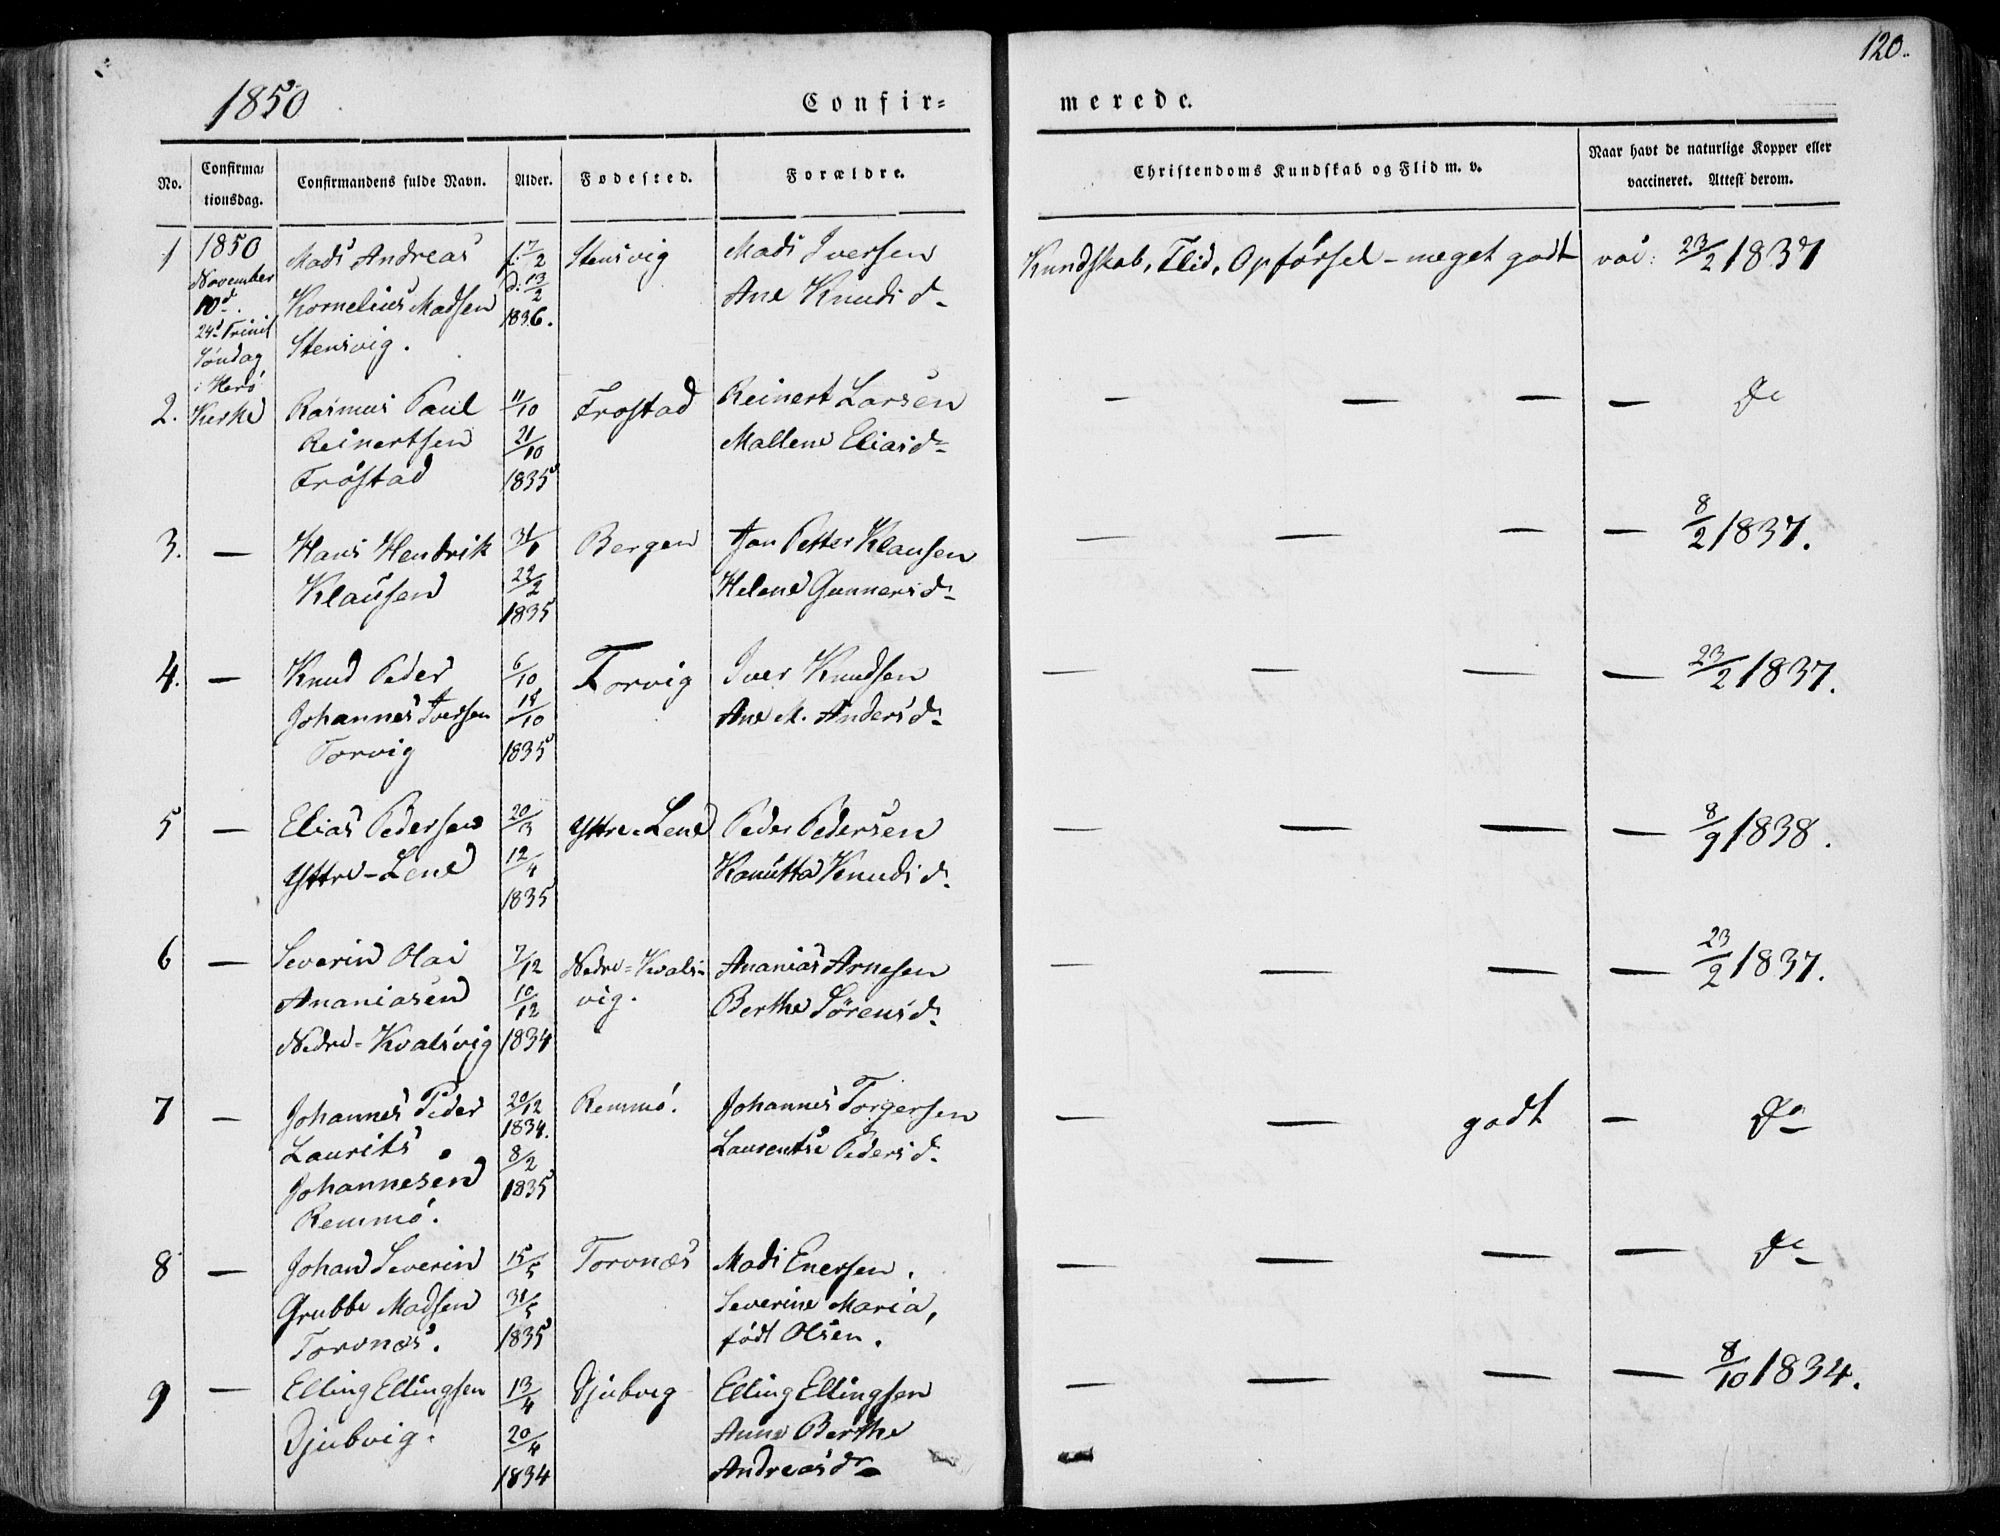 120.
1850
Confir= merede.
No. Confirma=tionsdag. Confirmandens fulde Navn. Alder. Fødested. Forældre. Christendoms Kundskab og Flid m. v. Naar havt de naturlige Kopper eller vaccineret. Attest derom.
1 1850 Mads Andreas f: 7/2 Stensvig Mads Iversen Kundskab, Flid, Opførsel – meget godt vac: 23/2 1837
November Kornelius Madsen d: 13/2 Ane Knudsd.
10d. Stensvig. 1836.
24d Trinit
Søndag
i Herø
2. Kirke Rasmus Paul 11/10 Frøstad Reinert Larsen — — — — do
Reinertsen 21/10 Mallene Eliasd.
Frøstad 1835
3. — Hans Hendrik 31/1 Bergen Jon Petter Klausen — — — — 8/2 1837.
Klausen 22/2 Helene Gunnersd.
1835
4. — Knud Peder 6/10 Torvig Iver Knudsen — — — — 23/2 1837.
Johannes Iversen 18/10 Ane M. Andersd.
Torvig 1835
5 — Elias Pedersen 20/3 Yttre-Lene Peder Pedersen — — — — 8/9 1838.
Yttre-Lene 12/4 Kanutta Knudsd.
1835
6 — Severin Olai 7/12 Nedre=Kvals- Ananias Arnesen — — — — 23/2 1837.
Ananiasen 10/12 vig. Berthe Sørensd.
Nedre-Kvalsvig 1834
7 — Johannes Peder 20/12 Remmö. Johannes Torgersen — — godt — do
Laurits 1834. Laurentse Pedersd.
Johannesen 8/2
Remmö. 1835
8 — Johan Severin 15/5 Torvnæs Mads Enersen. — — — — do
Grubbe Madsen 31/5 Severine Maria,
Torvnæs. 1835 født Olsen.
9 — Elling Ellingsen 13/4 Djubvig Elling Ellingsen — — — — 8/10 1834.
Djubvig. 20/4 Anne Berthe
1834 Andreasdr